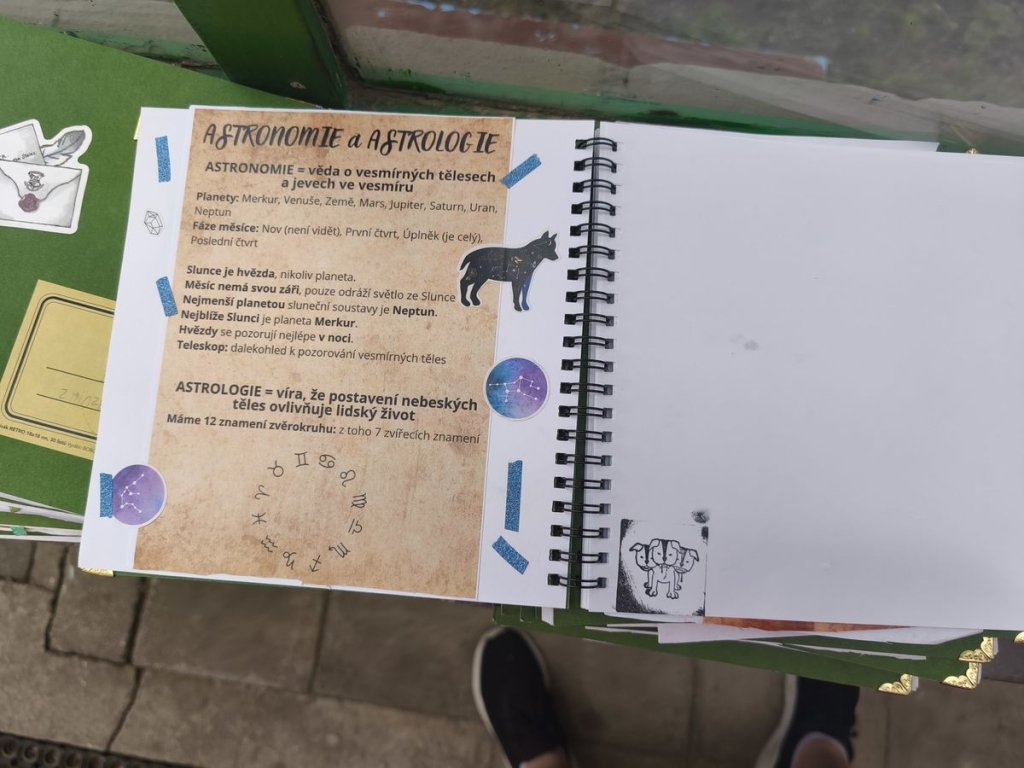 ASTRONOMIE a ASTROLOGIE
ASTRONOMIE = věda o vesmírných tělesech
a jevech ve vesmíru
Planety: Merkur, Venuše, Země, Mars, Jupiter, Saturn, Uran,
Neptun
Fáze měsíce: Nov (není vidět), První čtvrt, Úplněk (je celý),
Poslední čtvrt
Slunce je hvězda, nikoliv planeta.
Měsíc nemá svou záři, pouze odráží světlo ze Slunce
Nejmenší planetou sluneční soustavy je Neptun.
Nejblíže Slunci je planeta Merkur.
Hvězdy se pozorují nejlépe v noci.
Teleskop: dalekohled k pozorování vesmírných těles
ASTROLOGIE = víra, že postavení nebeských
těles ovlivňuje lidský život
Máme 12 znamení zvěrokruhu: z toho 7 zvířecích znamení